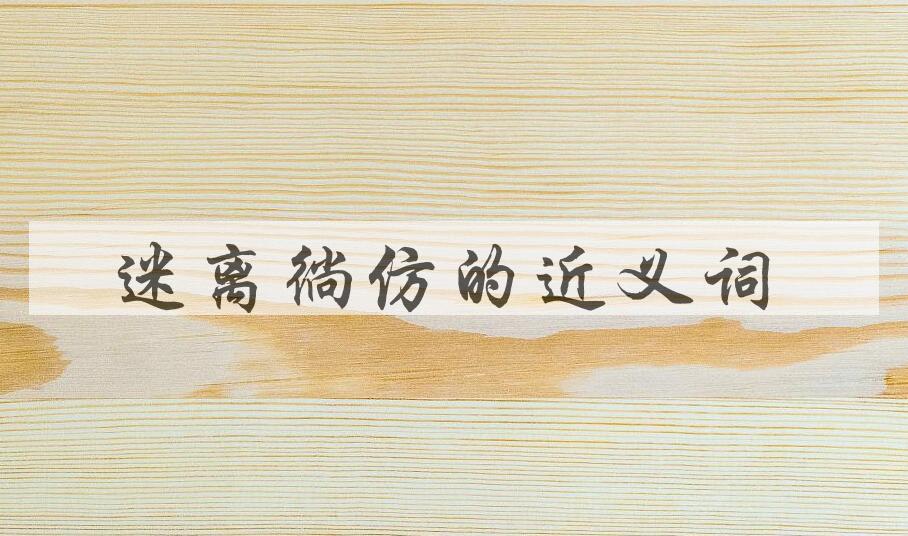 迷离徜仿的近义词